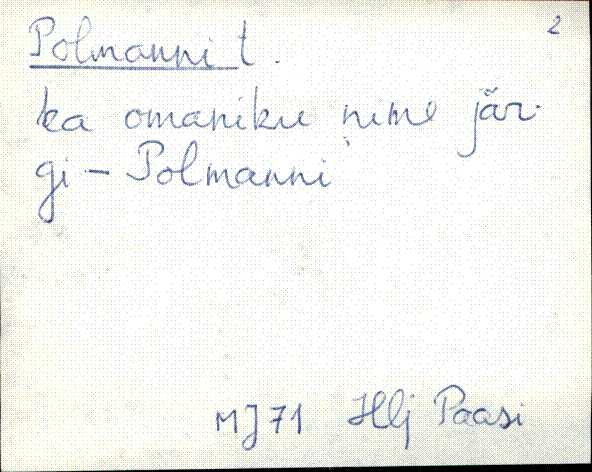 2
Polmanni t.
ka omaniku nime jär-
gi - Polmanni
MJ71 Hlj Paasi